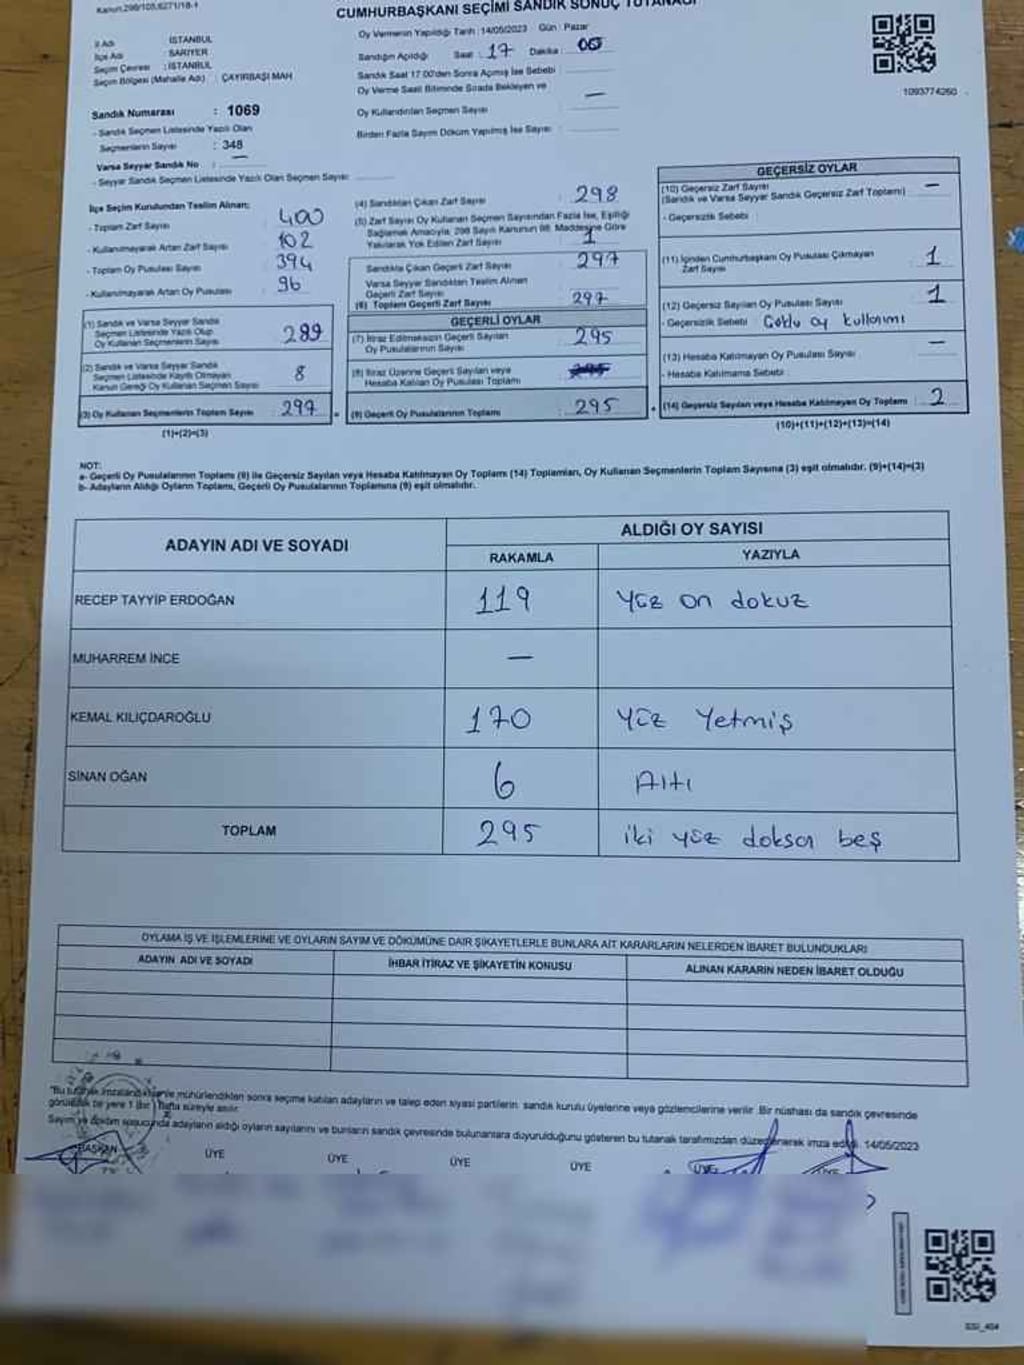 Kanun.298/105,6271/18-1
CUMHURBAŞKANI SEÇİMİ SANDIK SONUÇ TUTANAĞI
İl Adı : İSTANBUL
İlçe Adı : SARIYER
Seçim Çevresi : İSTANBUL
Seçim Bölgesi (Mahalle Adı) : ÇAYIRBAŞI MAH
Sandık Numarası : 1069
- Sandık Seçmen Listesinde Yazılı Olan
Seçmenlerin Sayısı : 348
Varsa Seyyar Sandık No : —
- Seyyar Sandık Seçmen Listesinde Yazılı Olan Seçmen Sayısı:
Oy Vermenin Yapıldığı Tarih :14/05/2023 Gün : Pazar
Sandığın Açıldığı Saat : 17 Dakika : 00
Sandık Saat 17.00'den Sonra Açmış İse Sebebi :
Oy Verme Saati Bitiminde Sırada Bekleyen ve
Oy Kullandırılan Seçmen Sayısı : —
Birden Fazla Sayım Döküm Yapılmış İse Sayısı :
1093774260
İlçe Seçim Kurulundan Teslim Alınan;
- Toplam Zarf Sayısı : 400
- Kullanılmayarak Artan Zarf Sayısı : 102
- Toplam Oy Pusulası Sayısı : 394
- Kullanılmayarak Artan Oy Pusulası : 96
(1) Sandık ve Varsa Seyyar Sandık
Seçmen Listesinde Yazılı Olup
Oy Kullanan Seçmenlerin Sayısı : 289
(2) Sandık ve Varsa Seyyar Sandık
Seçmen Listesinde Kayıtlı Olmayan
Kanun Gereği Oy Kullanan Seçmen Sayısı : 8
(3) Oy Kullanan Seçmenlerin Toplam Sayısı : 297
(1)+(2)=(3)
(4) Sandıktan Çıkan Zarf Sayısı : 298
(5) Zarf Sayısı Oy Kullanan Seçmen Sayısından Fazla İse, Eşitliği
Sağlamak Amacıyla, 298 Sayılı Kanunun 98. Maddesine Göre
Yakılarak Yok Edilen Zarf Sayısı : 1
Sandıkta Çıkan Geçerli Zarf Sayısı : 297
Varsa Seyyar Sandıktan Teslim Alınan
Geçerli Zarf Sayısı
(6) Toplam Geçerli Zarf Sayısı : 297
GEÇERLİ OYLAR
(7) İtiraz Edilmeksizin Geçerli Sayılan
Oy Pusulalarının Sayısı : 295
(8) İtiraz Üzerine Geçerli Sayılan veya
Hesaba Katılan Oy Pusulası Toplamı :
(9) Geçerli Oy Pusulalarının Toplamı : 295
GEÇERSİZ OYLAR
(10) Geçersiz Zarf Sayısı
(Sandık ve Varsa Seyyar Sandık Geçersiz Zarf Toplamı) —
- Geçersizlik Sebebi :
(11) İçinden Cumhurbaşkanı Oy Pusulası Çıkmayan
Zarf Sayısı : 1
(12) Geçersiz Sayılan Oy Pusulası Sayısı : 1
- Geçersizlik Sebebi : Çoklu oy kullanımı
(13) Hesaba Katılmayan Oy Pusulası Sayısı : —
- Hesaba Katılmama Sebebi :
(14) Geçersiz Sayılan veya Hesaba Katılmayan Oy Toplamı : 2
(10)+(11)+(12)+(13)=(14)
NOT:
a- Geçerli Oy Pusulalarının Toplamı (9) ile Geçersiz Sayılan veya Hesaba Katılmayan Oy Toplamı (14) Toplamları, Oy Kullanan Seçmenlerin Toplam Sayısına (3) eşit olmalıdır. (9)+(14)=(3)
b- Adayların Aldığı Oyların Toplamı, Geçerli Oy Pusulalarının Toplamına (9) eşit olmalıdır.
ADAYIN ADI VE SOYADI
ALDIĞI OY SAYISI
RAKAMLA YAZIYLA
RECEP TAYYİP ERDOĞAN 119 Yüz on dokuz
MUHARREM İNCE —
KEMAL KILIÇDAROĞLU 170 Yüz Yetmiş
SİNAN OĞAN 6 Altı
TOPLAM 295 iki yüz doksan beş
OYLAMA İŞ VE İŞLEMLERİNE VE OYLARIN SAYIM VE DÖKÜMÜNE DAİR ŞİKAYETLERLE BUNLARA AİT KARARLARIN NELERDEN İBARET BULUNDUKLARI
ADAYIN ADI VE SOYADI İHBAR İTİRAZ VE ŞİKAYETİN KONUSU ALINAN KARARIN NEDEN İBARET OLDUĞU
"Bu tutanak imzalandıktan ve mühürlendikten sonra seçime katılan adayların ve talep eden siyasi partilerin sandık kurulu üyelerine veya gözlemcilerine verilir. Bir nüshası da sandık çevresinde
görülebilir bir yere 1 (bir) hafta süreyle asılır.
Sayım ve döküm sonucunda adayların aldığı oyların sayılarını ve bunların sandık çevresinde bulunanlara duyurulduğunu gösteren bu tutanak tarafımızdan düzenlenerek imza edildi. 14/05/2023
BAŞKAN ÜYE ÜYE ÜYE ÜYE ÜYE ÜYE